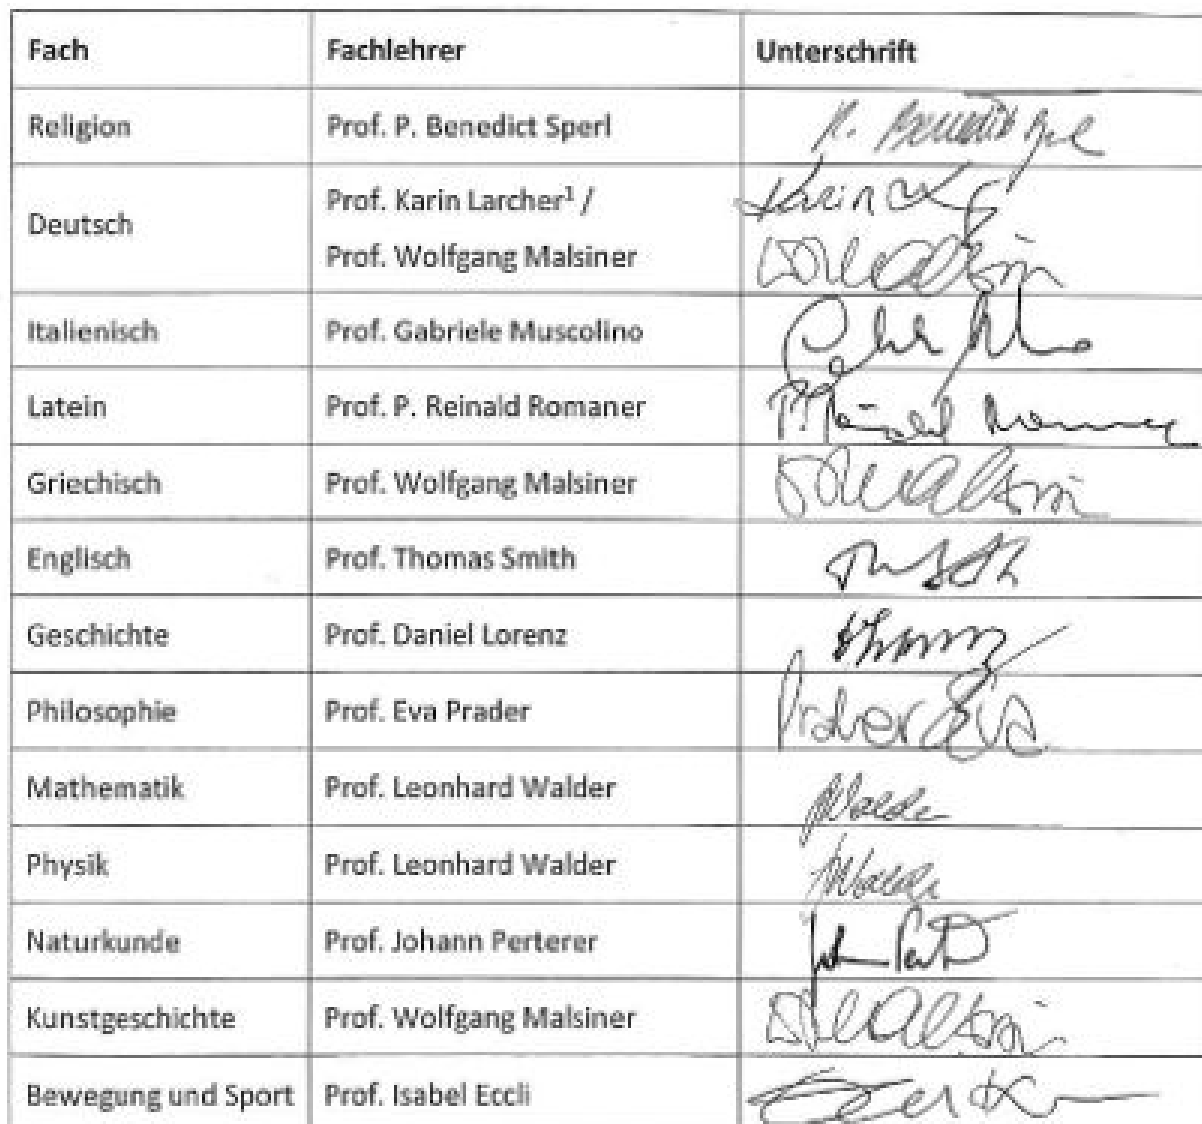 Fach Fachlehrer Unterschrift
Religion Prof. P. Benedict Sperl P. Benedikt Sperl
Deutsch Prof. Karin Larcher¹ / Karin
Prof. Wolfgang Malsiner
Italienisch Prof. Gabriele Muscolino
Latein Prof. P. Reinald Romaner
Griechisch Prof. Wolfgang Malsiner
Englisch Prof. Thomas Smith
Geschichte Prof. Daniel Lorenz
Philosophie Prof. Eva Prader Prader Eva
Mathematik Prof. Leonhard Walder
Physik Prof. Leonhard Walder
Naturkunde Prof. Johann Perterer
Kunstgeschichte Prof. Wolfgang Malsiner
Bewegung und Sport Prof. Isabel Eccli